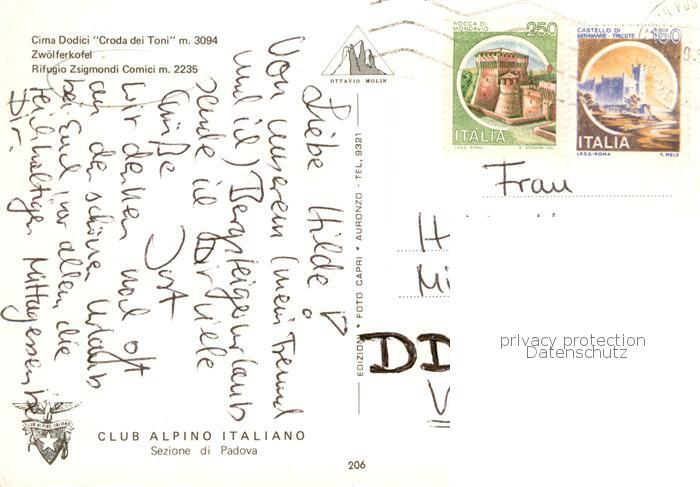 Cima Dodici "Croda dei Toni" m. 3094
Zwölferkofel
Rifugio Zsigmondi Comici m. 2235
OTTAVIO MOLIN
ROCCA DI
MONDAVIO
250
ITALIA
I.P.Z.S. - ROMA
CASTELLO DI
MIRAMARE - TRIESTE
150
ITALIA
I.P.Z.S. - ROMA
T. MELE
Liebe Hilde!
Von unserem (mein Freund
und ich) Bergsteigerurlaub
sende ich Dir viele
Grüße Jost
Wir denken noch oft
an den schönen Urlaub
bei Euch (vor allem die
reichhaltigen Mittagessen bei
Dir.
EDIZIONI • FOTO CAPRI • AURONZO - TEL. 9321
Frau
H
Mi
DD
privacy protection
Datenschutz
CLUB ALPINO ITALIANO
CLUB ALPINO ITALIANO
Sezione di Padova
206